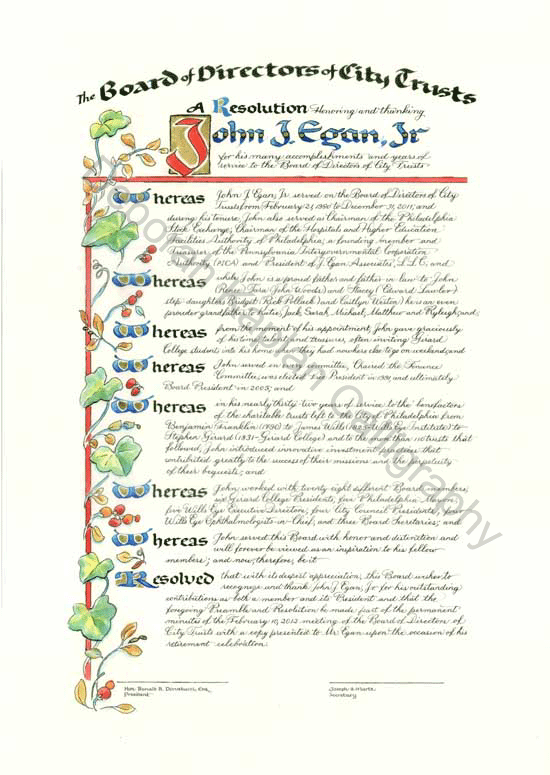 The Board of Directors of City Trusts
A Resolution Honoring and thanking
John J. Egan, Jr
for his many accomplishments and years of
service to the Board of Directors of City Trusts
Whereas John J. Egan, Jr. served on the Board of Directors of City
Trusts from February 21, 1980 to December 31, 2011; and
during his tenure, John also served as Chairman of the Philadelphia
Stock Exchange; Chairman of the Hospitals and Higher Education
Facilities Authority of Philadelphia; a founding member and
Treasurer of the Pennsylvania Intergovernmental Corporation
Authority (PICA) and President of J. Egan Associates, LLC; and
Whereas while John is a proud father and father-in-law to John
(Renee) Tara (John Woods) and Stacey (Edward Lawlor)
step-daughters Bridget (Rick Pollack) and Caitlyn Weston, he is an even
prouder grandfather to Katie, Jack, Sarah, Michael, Matthew and Ryleigh; and
Whereas from the moment of his appointment, John gave graciously
of his time, talents and treasures, often inviting Girard
College students into his home who they had nowhere else to go on weekends; and
Whereas John served in Committee, Chaired the Finance
Committee, was elected Vice President in 1991, and ultimately
Board President in 2005; and
Whereas in his nearly thirty-two years of service to the benefactors
of the charitable trusts left to the City of Philadelphia from
Benjamin Franklin (1790) to James Wills (1825-Wills Eye Institute) to
Stephen Girard (1831-Girard College) and to the more than 110 trusts that
followed, John introduced innovative investment policies that
contributed greatly to the success of their missions and the perpetuity
of their bequests; and
Whereas John worked with twenty eight different Board members,
six Girard College Presidents, five Philadelphia Mayors,
five Wills Eye Executive Directors, four City Council Presidents, four
Wills Eye Ophthalmologists-in-Chief, and three Board Secretaries; and
Whereas John served this Board with honor and distinction and
will forever be viewed as an inspiration to his fellow
members; and now, therefore, be it
Resolved that with its deepest appreciation, this Board wishes to
recognize and thank John J. Egan, Jr. for his outstanding
contributions as both a member and its President and that the
foregoing Preamble and Resolution be made part of the permanent
minutes of the February 10, 2012 meeting of the Board of Directors of
City Trusts with a copy presented to Mr. Egan upon the occasion of his
retirement celebration.
Hon. Ronald R. Donatucci, Esq.
President
Joseph
Secretary
kaplan calligraphy